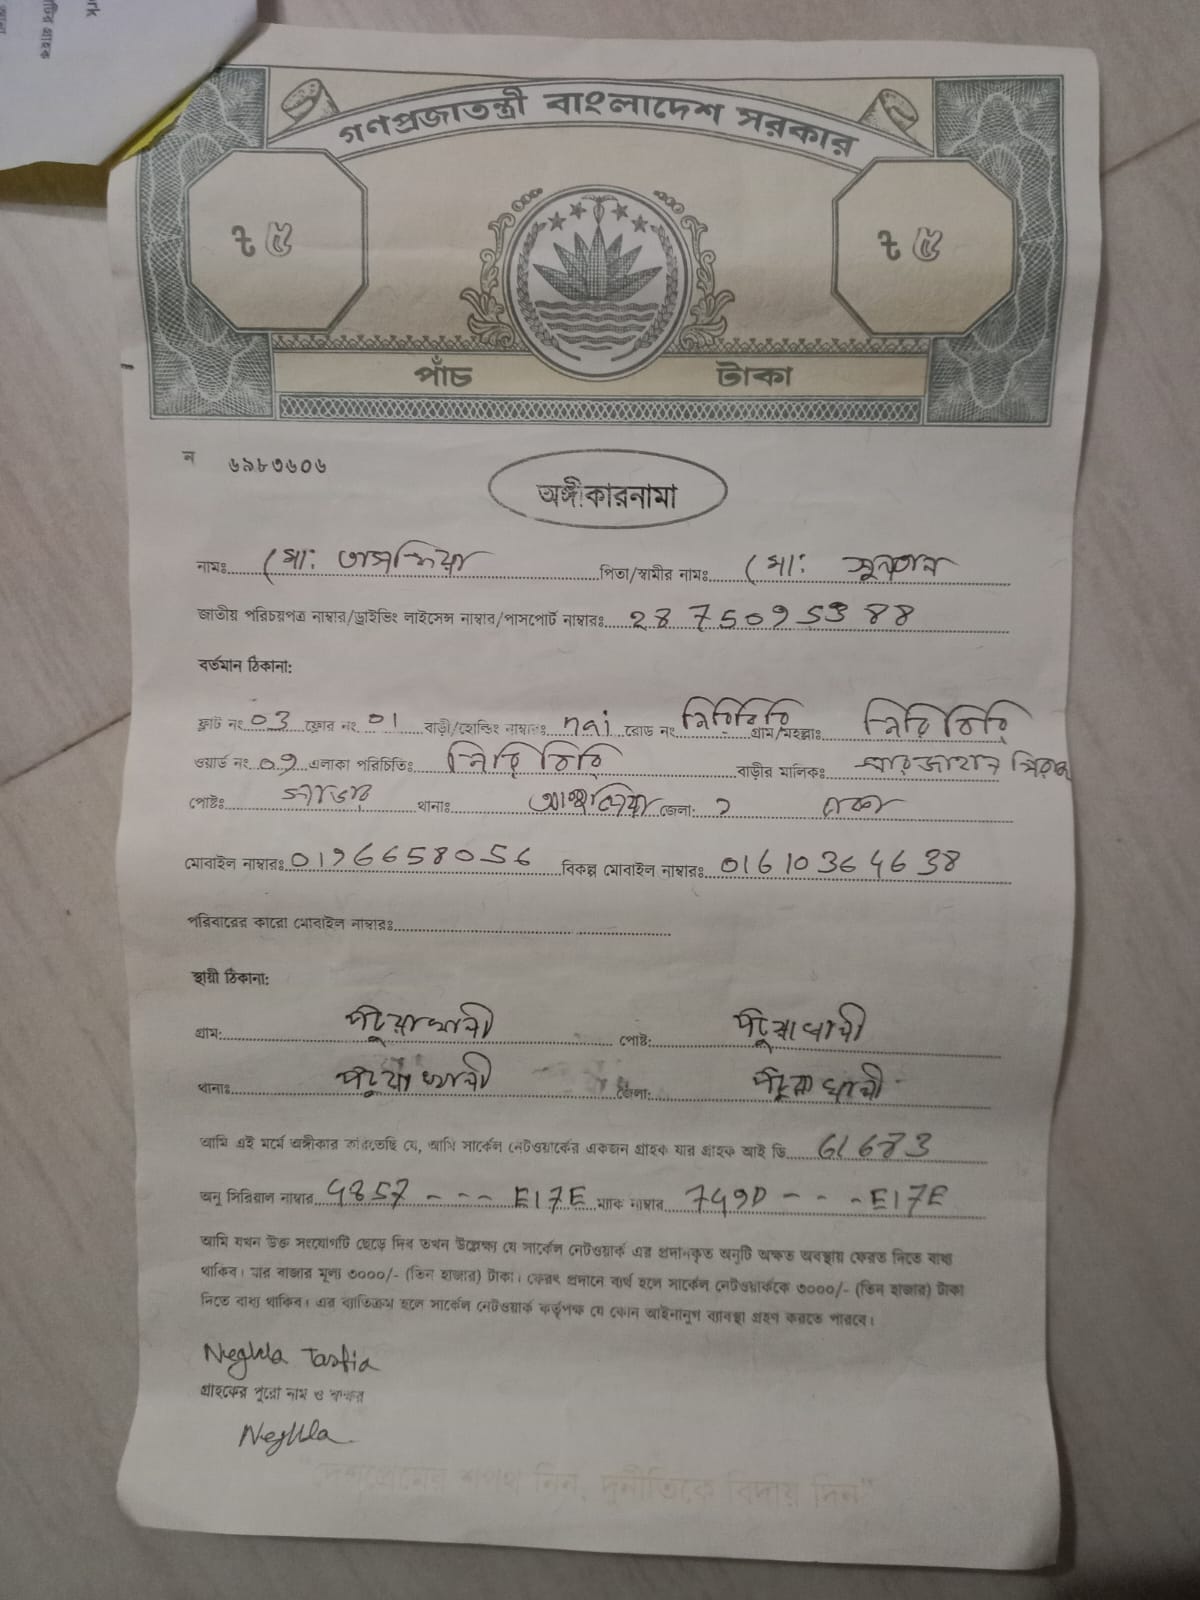 rk
টির গ্রাহক
গণপ্রজাতন্ত্রী বাংলাদেশ সরকার
৳ ৫ ৳ ৫
পাঁচ টাকা
ন ৬৯৮৩৬০৬
অঙ্গীকারনামা
নামঃ মো: তাসফিয়া পিতা/স্বামীর নামঃ মো: সুলতান
জাতীয় পরিচয়পত্র নাম্বার/ড্রাইভিং লাইসেন্স নাম্বার/পাসপোর্ট নাম্বারঃ 2875095388
বর্তমান ঠিকানা:
ফ্লাট নং 03 ফ্লোর নং 01 বাড়ী/হোল্ডিং নাম্বারঃ nai রোড নং গ্রাম/মহল্লাঃ
ওয়ার্ড নং 09 এলাকা পরিচিতিঃ বাড়ীর মালিকঃ
পোষ্টঃ সাভার থানাঃ আশুলিয়া জেলা: ঢাকা
মোবাইল নাম্বারঃ 0196658056 বিকল্প মোবাইল নাম্বারঃ 01610364638
পরিবারের কারো মোবাইল নাম্বারঃ
স্থায়ী ঠিকানা:
গ্রাম: পটুয়াখালী পোষ্ট: পটুয়াখালী
থানাঃ পটুয়াখালী জেলা: পটুয়াখালী
আমি এই মর্মে অঙ্গীকার করিতেছি যে, আমি সার্কেল নেটওয়ার্কের একজন গ্রাহক যার গ্রাহক আই ডি 61683
অনু সিরিয়াল নাম্বার 4857 - - - E17E ম্যাক নাম্বার 749D - - - E17E
আমি যখন উক্ত সংযোগটি ছেড়ে দিব তখন উল্লেক্ষ্য যে সার্কেল নেটওয়ার্ক এর প্রদানকৃত অনুটি অক্ষত অবস্থায় ফেরত দিতে বাধ্য
থাকিব। যার বাজার মূল্য ৩০০০/- (তিন হাজার) টাকা। ফেরৎ প্রদানে ব্যর্থ হলে সার্কেল নেটওয়ার্ককে ৩০০০/- (তিন হাজার) টাকা
দিতে বাধ্য থাকিব। এর ব্যাতিক্রম হলে সার্কেল নেটওয়ার্ক কর্তৃপক্ষ যে কোন আইনানুগ ব্যাবস্থা গ্রহণ করতে পারবে।
Neghla Tasfia
গ্রাহকের পুরো নাম ও স্বাক্ষর
Neghla
"দেশপ্রেমের শপথ নিন, দুর্নীতিকে বিদায় দিন"